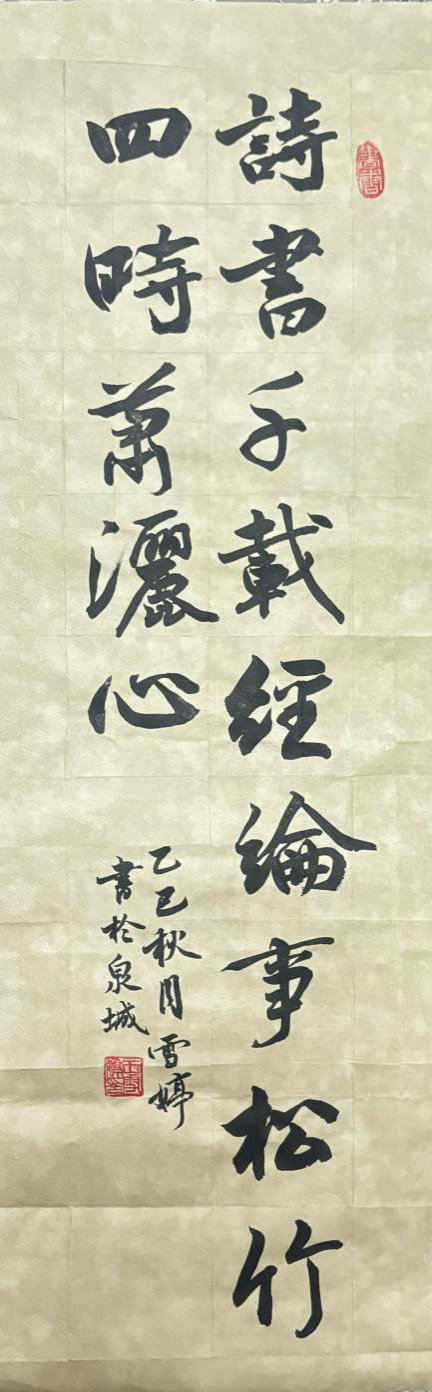 詩書千載經綸事松竹
四時蕭灑心
乙巳秋月雪婷
書於泉城